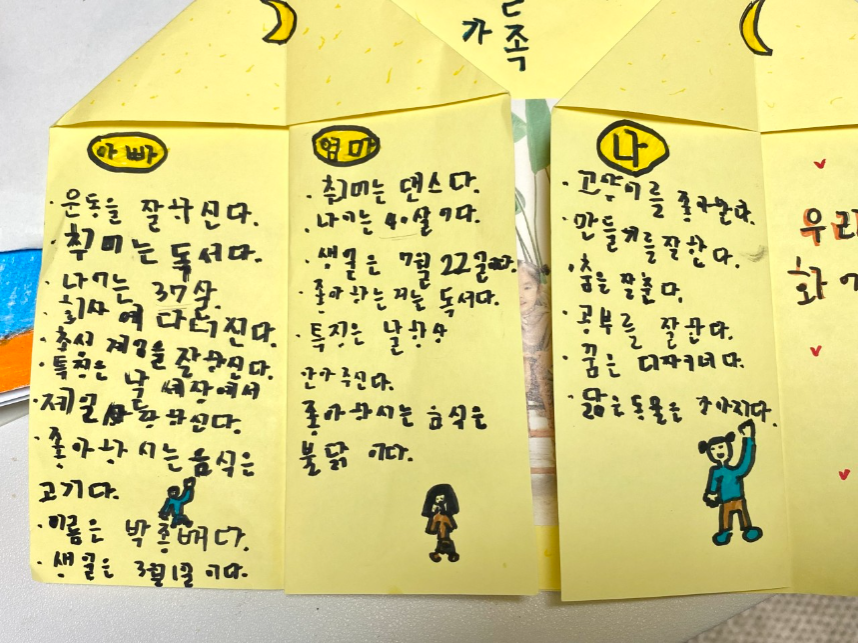 가족
아빠
· 운동을 잘하신다.
· 취미는 독서다.
· 나이는 37살.
· 회사에 다니진다.
· 특징은 세상에서
제일 하신다.
· 좋아하시는 음식은
고기다.
· 이름은 박종배다.
· 생일은 3월1일 이다.
엄마
· 취미는 댄스다.
· 나이는 40살이다.
· 생일은 7월 22일이다.
· 좋아하는 독서다.
· 특징은 날 항상
안아주신다.
좋아하시는 음식은
불닭 이다.
나
· 고양이를 좋아한다.
· 만들기를 잘한다.
· 춤을 잘춘다.
· 공부를 잘한다.
· 꿈은 디자이너다.
· 닮은동물은 강아지다.
우리